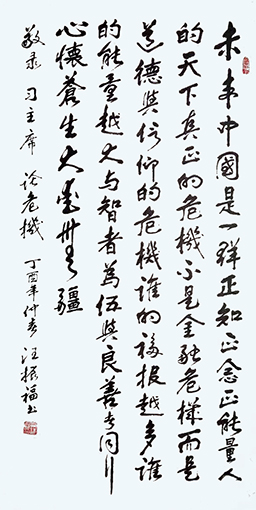 未来中國是一群正知正念正能量人
的天下真正的危機不是金融危機而是
道德與信仰的危機誰的福报越多誰
的能量越大与智者為伍與良善者同行
心懷蒼生大愛無疆
敬录 习主席 论危機 丁酉年仲春 汪振福书